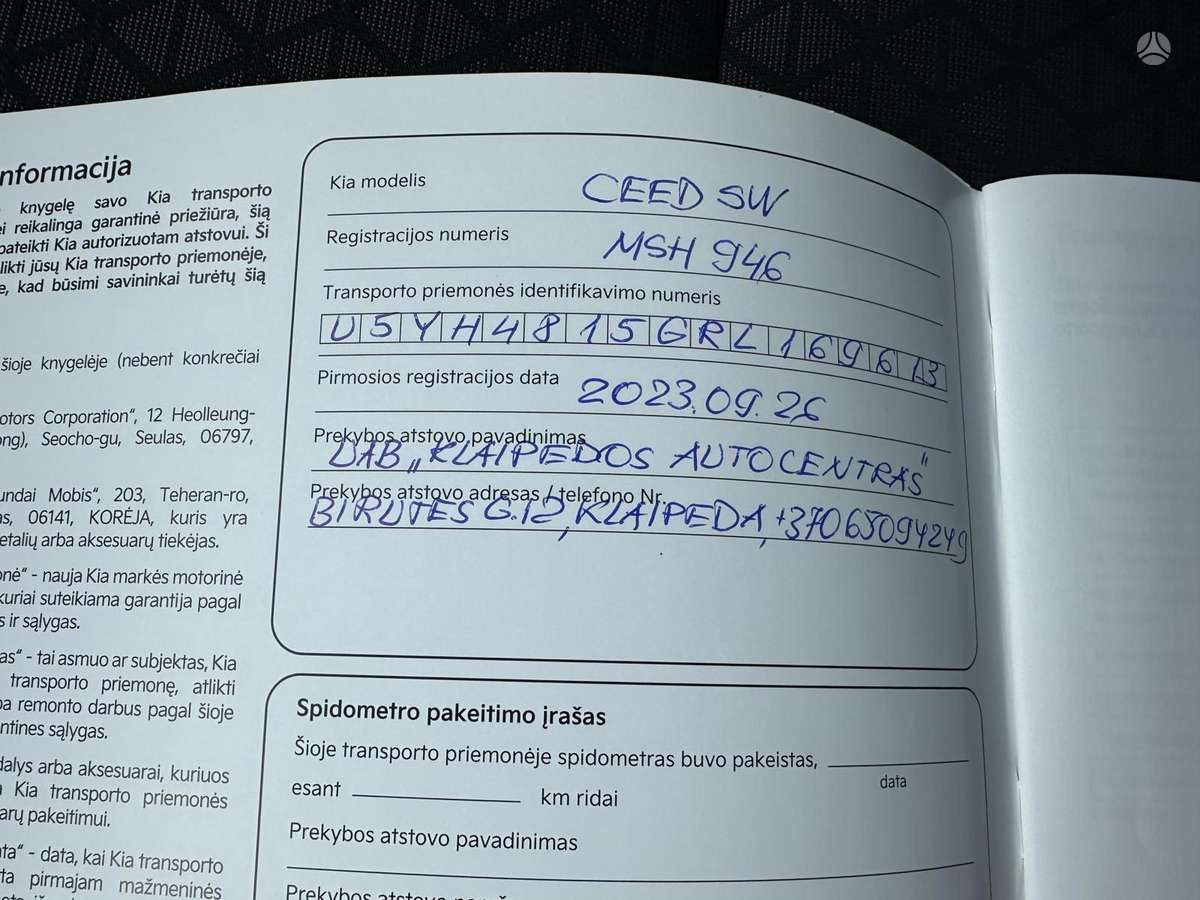 nformacija
knygelę savo Kia transporto
ei reikalinga garantinė priežiūra, šią
pateikti Kia autorizuotam atstovui. Ši
likti jūsų Kia transporto priemonėje,
e, kad būsimi savininkai turėtų šią
šioje knygelėje (nebent konkrečiai
otors Corporation“, 12 Heolleung-
ong), Seocho-gu, Seulas, 06797,
undai Mobis“, 203, Teheran-ro,
as, 06141, KORĖJA, kuris yra
etalių arba aksesuarų tiekėjas.
onė“ - nauja Kia markės motorinė
kuriai suteikiama garantija pagal
s ir sąlygas.
as“ - tai asmuo ar subjektas, Kia
transporto priemonę, atlikti
ba remonto darbus pagal šioje
ntines sąlygas.
dalys arba aksesuarai, kuriuos
Kia transporto priemonės
arų pakeitimui.
ata“ - data, kai Kia transporto
ta pirmajam mažmeninės
Kia modelis CEED SW
Registracijos numeris MSH 946
Transporto priemonės identifikavimo numeris
U5YH4815GRL169613
Pirmosios registracijos data 2023.09.26
Prekybos atstovo pavadinimas
UAB „KLAIPEDOS AUTOCENTRAS"
Prekybos atstovo adresas / telefono Nr.
BIRUTES G.12, KLAIPEDA, +37065094249
Spidometro pakeitimo įrašas
Šioje transporto priemonėje spidometras buvo pakeistas,
data
esant km ridai
Prekybos atstovo pavadinimas
Prekybos atstovo